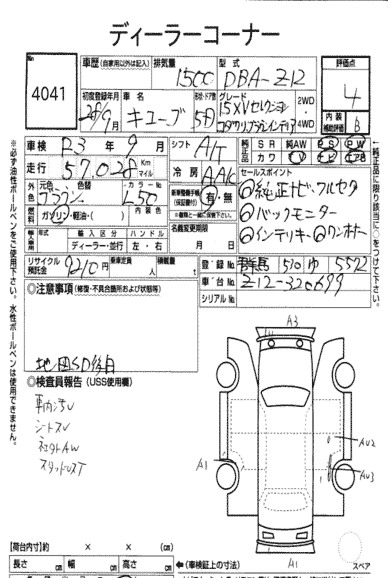 ディーラーコーナー
No. 4041
車歴(自家用以外は記入) 排気量 1500 型式 DBA-Z12 評価点 4
初度登録年月 28/9月 車名 キューブ 形状・ドア数 5D グレード 15XVセレクション 2WD 4WD
内装補助評価 B
車検 R3年9月 シフト A/T 純正品 SR 純AW PS PW カワ
走行 57,028 Km マイル 冷房 AAC セールスポイント
外色 元色 色替 カラーNo. L50 新車整備手帳(保証書付) 有・無
ブラウン ①純正ナビ、フルセグ
燃料 ガソリン・軽油・( ) 内装色 ②バックモニター
輸入車 輸入区分 ハンドル 名義変更期限 ③インテリキー ④ワンオーナー
ディーラー・並行 左・右 月 日
リサイクル預託金 9210円 乗車定員 人 積載量 t 登録No. 群馬 530 ゆ 5572
車台No. Z12-320699
シリアルNo.
◎注意事項(修復・不具合箇所および状態等)
地図SD後日
◎検査員報告(USS使用欄)
車内汚レ
シートスレ
社外AW
スタッドレスT
A3
A1
AU2
AU3
A1
スペア
【荷台内寸】約 × × (㎝)
長さ ㎝ 幅 ㎝ 高さ ㎝ ←(車検証上の寸法)
※必ず油性ボールペンをご使用下さい。水性ボールペンは使用できません。
←純正品に限り該当に○をつけて下さい。